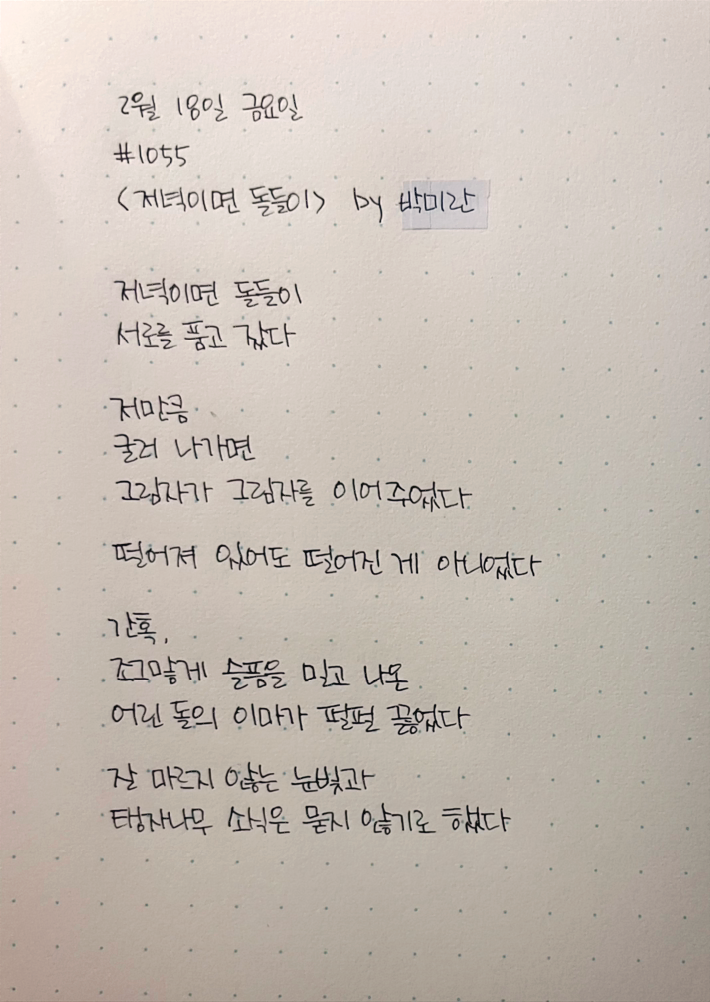 2월 18일 금요일
#1055
<저녁이면 돌들이> by 박미란
저녁이면 돌들이
서로를 품고 잤다
저만큼
굴러 나가면
그림자가 그림자를 이어주었다
떨어져 있어도 떨어진 게 아니었다
간혹,
조그맣게 슬픔을 밀고 나온
어린 돌의 이마가 펄펄 끓었다
잘 마르지 않는 눈빛과
탱자나무 소식은 묻지 않기로 했다